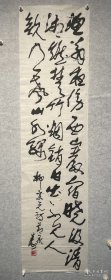 渔翁夜傍西岩宿晓汲清
湘燃楚竹烟销日出不见人
欸乃一声山水绿
柳宗元诗